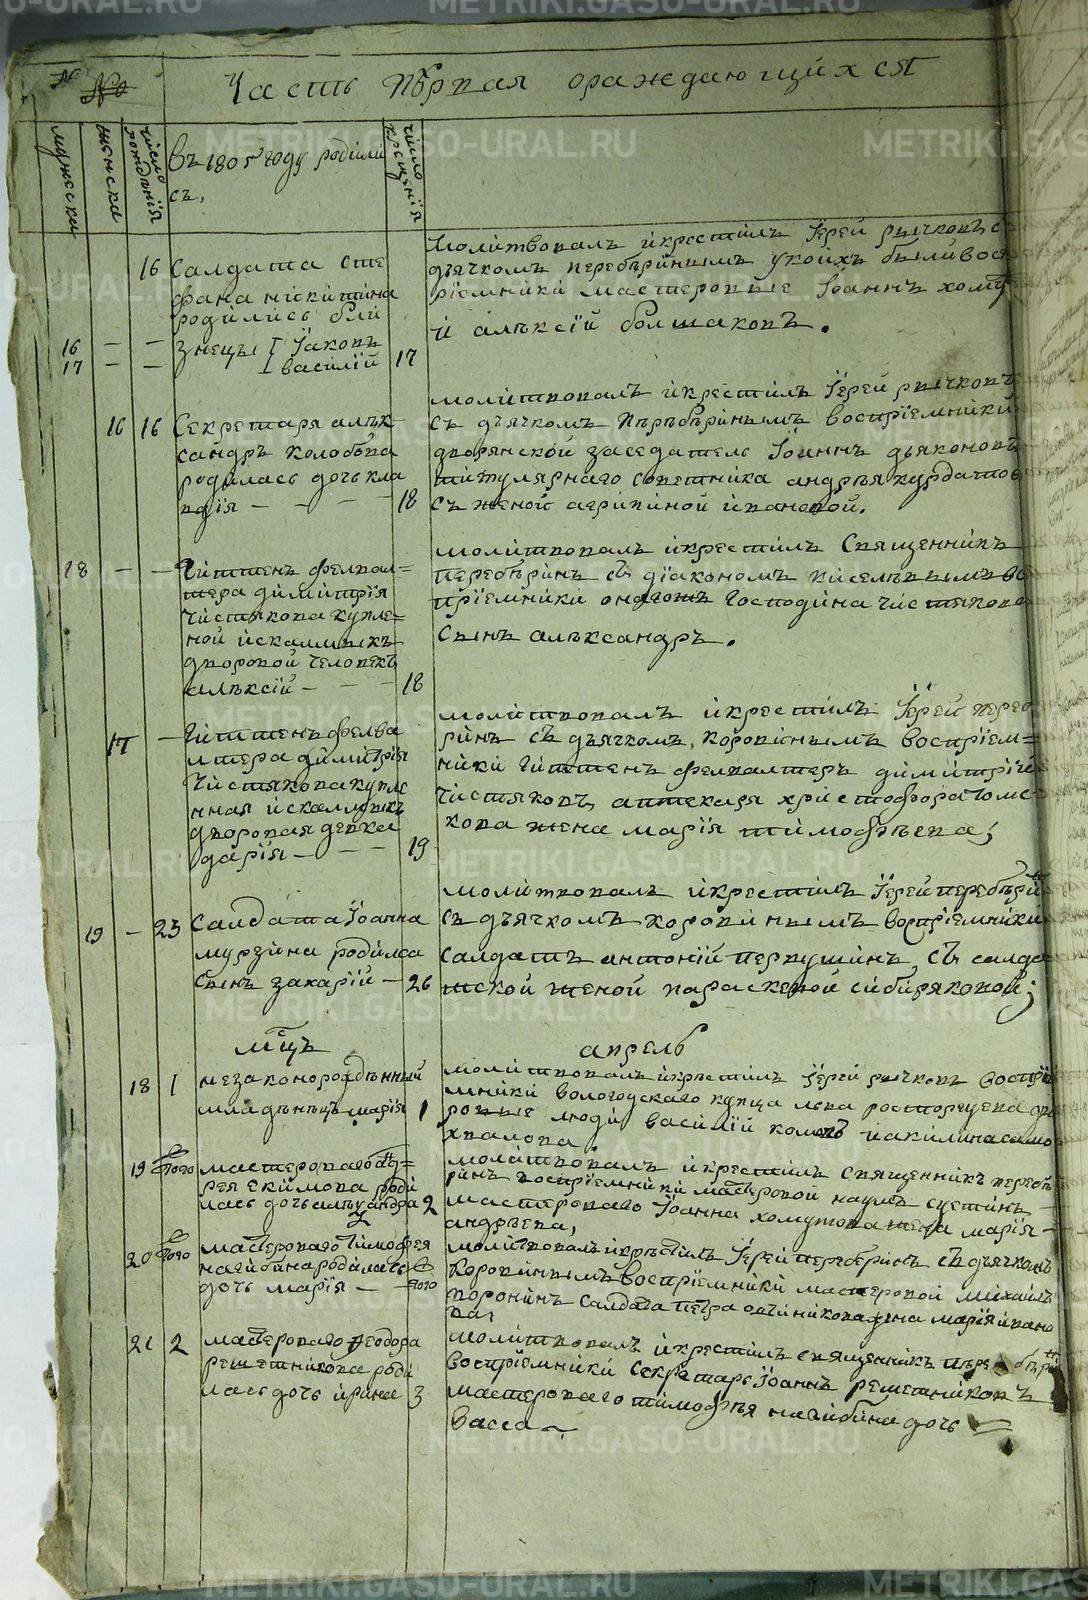 №
Часть Пѣрвая ораждающихся
мужеска
женска
число рожденія
Въ 1805 году родили
съ,
число крещенія
16 Салдата Сте
фана никитина
родились бли
16 — — знецы Іаковъ
17 — — василій 17
Молитвовалъ икрестилъ Іерей рычковъ съ
дьячкомъ перебѣринымъ укоихъ были вос
рiемники мастеровые Іоаннъ хому
и алѣксій болшаковъ.
16 16 Секретаря алѣк
сандръ колобова
родилась дочь кла
вдія — — 18
молитвовалъ икрестилъ Іерей рычковъ
съ дьячкомъ пѣрѣбѣринымъ воспріемники
дворянской заседатель Іоаннъ дьяконовъ
титулярнаго советника андрѣя курбатов
съ женой агрипиной ивановой.
18 — — Гиттенъ фелвал=
тера димитрія
Чистякова купле=
ной искалмыкъ
дворовой человекъ
алѣксій — — 18
молитвовалъ икрестилъ Священникъ
перебѣринъ съ діакономъ киселѣвымъ во
прiемники онагожъ господина чистякова
сынъ алѣксандръ.
17 — Гиттенъ фелва
лтера димитрія
Чистякова купле
нная искалмыкъ
дворовая девка
дарія — — 19
молитвовалъ икрестилъ Іерей перебѣ
ринъ съ дьячкомъ коровинымъ воспріем=
ники Гиттенъ фелвалтеръ димитрій
Чистяковъ, аптекаря христофора томе
кова жена марія тимофѣева;
19 — 23 Салдата Іоанна
мурзина родился
сынъ захарій — 26
молитвовалъ икрестилъ Іерей перебѣри
съ дьячкомъ коровинымъ воспріемники
салдатъ антоній первушинъ, съ салда
тской женой параскевой сибиряковой;
мсцъ
апрель
18 1 незаконорождѣнный
младѣнѣцъ марія 1
молитвовалъ икрѣстилъ Іерей рычковъ воспріе
мники вологодскаго купца льва росторцева дво
ровые люди василій комовъ иакилина само
хвалова
19 тогожъ мастероваго анд=
рея екимова роди
лась дочь алѣксандра 2
молитвовалъ икрестилъ священникъ перебѣ
ринъ воспріемники мастеровой наумъ сустинъ
мастероваго Іоанна хомутова жена марія
андрѣева,
20 тогожъ мастероваго тимофея
нагибина родилась
дочь марія — — тогожъ
молитвовалъ икрѣстилъ Іерей перѣберинъ съ дьячкомъ
коровинымъ воспріемники мастеровой михаилъ
воронинъ салдата пѣтра овчиникова жена марія ивано
ва;
21 2 мастероваго Феодора
решетникова роди
лась дочь ирина 3
молитвовалъ икрестилъ священникъ пѣребѣри
воспріемники секрѣтарь Іоаннъ решетниковъ
мастероваго тимофѣя нагибина дочь
васса